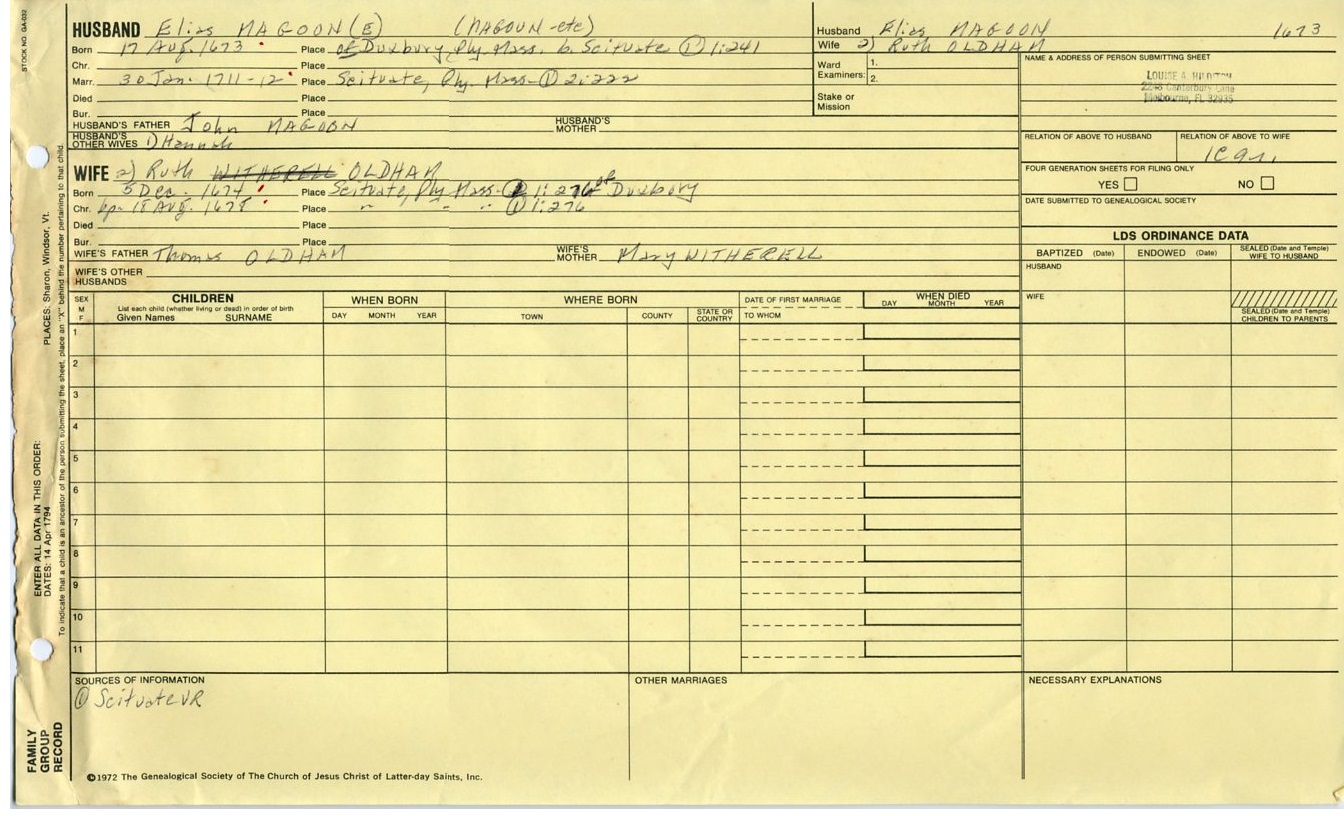 STOCK NO. GA-032
HUSBAND Elias MAGOON(E) (MAGOUN-etc)
Born 17 Aug. 1673 Place of Duxbury, Ply. Mass. b. Scituate ① 1:241
Chr. Place
Marr. 30 Jan. 1711-12 Place Scituate, Ply. Mass-① 2:222
Died Place
Bur. Place
HUSBAND'S FATHER John MAGOON HUSBAND'S MOTHER
HUSBAND'S OTHER WIVES 1) Hannah
Husband Elias MAGOON 1673
Wife 2) Ruth OLDHAM
Ward Examiners: 1.
2.
Stake or Mission
NAME & ADDRESS OF PERSON SUBMITTING SHEET
LOUISE A.
2246 Canterbury Lane
Melbourne, FL 32935
RELATION OF ABOVE TO HUSBAND RELATION OF ABOVE TO WIFE
FOUR GENERATION SHEETS FOR FILING ONLY
YES NO
DATE SUBMITTED TO GENEALOGICAL SOCIETY
WIFE 2) Ruth WITHERELL OLDHAM
Born 5 Dec. 1674 Place Scituate, Ply Mass- 1:276 of Duxbury
Chr. bp. 18 Aug. 1678 Place " " " ① 1:276
Died Place
Bur. Place
WIFE'S FATHER Thomas OLDHAM WIFE'S MOTHER Mary WITHERELL
WIFE'S OTHER HUSBANDS
LDS ORDINANCE DATA
BAPTIZED (Date) ENDOWED (Date) SEALED (Date and Temple) WIFE TO HUSBAND
HUSBAND
WIFE
SEALED (Date and Temple) CHILDREN TO PARENTS
SEX M F CHILDREN WHEN BORN WHERE BORN DATE OF FIRST MARRIAGE WHEN DIED
List each child (whether living or dead) in order of birth
Given Names SURNAME DAY MONTH YEAR TOWN COUNTY STATE OR COUNTRY TO WHOM DAY MONTH YEAR
1
2
3
4
5
6
7
8
9
10
11
SOURCES OF INFORMATION OTHER MARRIAGES NECESSARY EXPLANATIONS
① Scituate VR
©1972 The Genealogical Society of The Church of Jesus Christ of Latter-day Saints, Inc.
FAMILY GROUP RECORD
ENTER ALL DATA IN THIS ORDER:
DATES: 14 Apr 1794 PLACES: Sharon, Windsor, Vt.
To indicate that a child is an ancestor of the person submitting the sheet, place an "X" behind the number pertaining to that child.